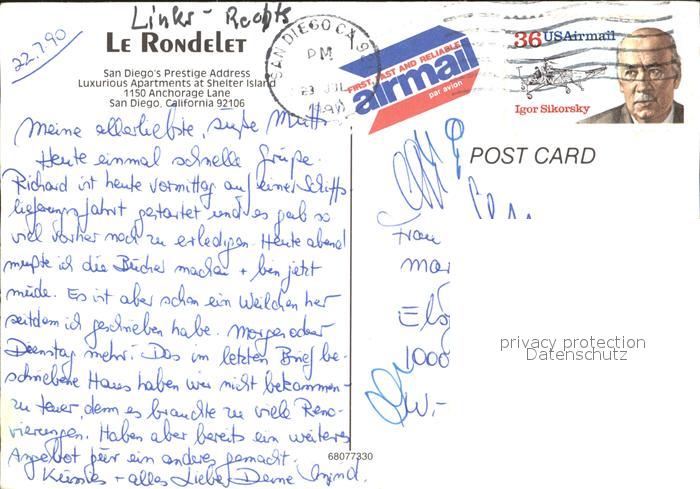 Links - Rechts
22.7.90
LE RONDELET
San Diego's Prestige Address
Luxurious Apartments at Shelter Island
1150 Anchorage Lane
San Diego, California 92106
SAN DIEGO CA 92
PM
23 JUL
FIRST, FAST AND RELIABLE
airmail
par avion
36 USAirmail
Igor Sikorsky
POST CARD
Meine allerliebste, süße Mutti
Heute einmal schnelle Grüße.
Richard ist heute vormittag auf einer Schiffs
lieferungsfahrt gestartet und es gab so
viel vorher noch zu erledigen. Heute abend
mußte ich die Bücher machen + bin jetzt
müde. Es ist aber schon ein Weilchen her
seitdem ich geschrieben habe. Morgen oder
Dienstag mehr! Das im letzten Brief be-
schriebene Haus haben wir nicht bekommen -
zu teuer, denn es brauchte zu viel Reno-
vierungen. Haben aber bereits ein weiteres
Angebot für ein anderes gemacht.
Küssies + alles Liebe, Deine
Frau
Mar
Els
1000
privacy protection
Datenschutz
68077330